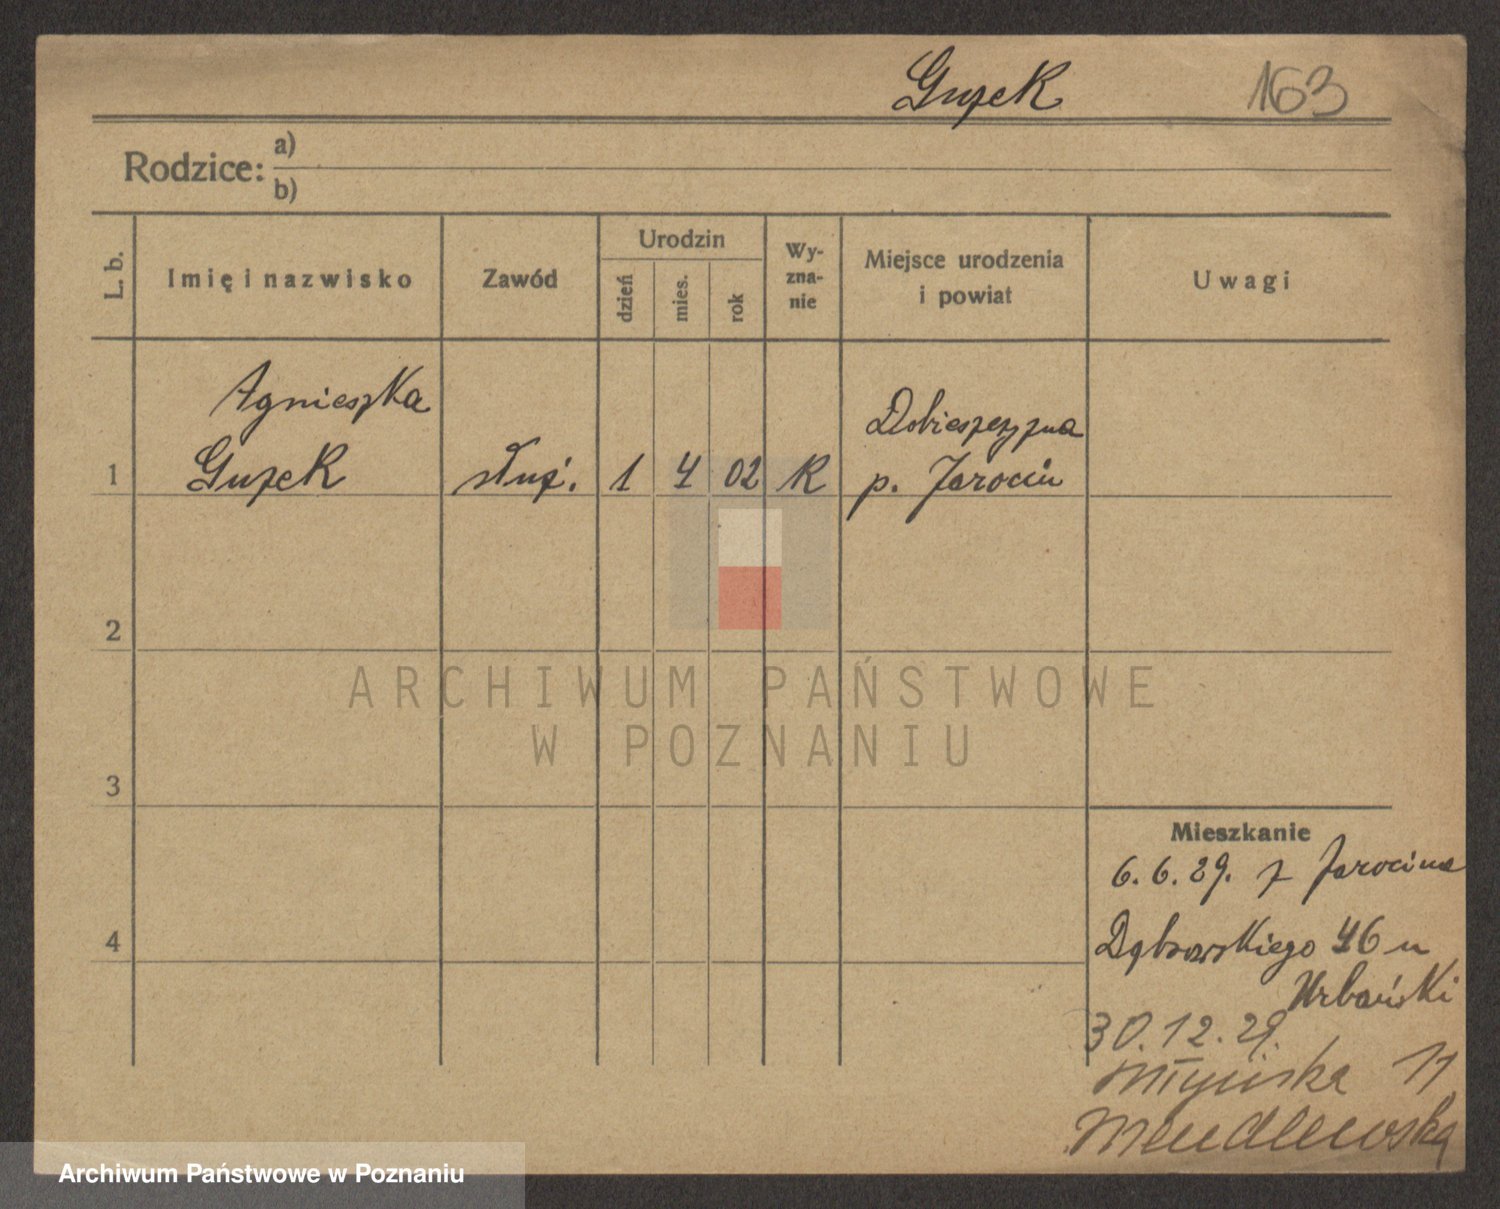 Guzek 163
Rodzice: a)
b)
L. b. Imię i nazwisko Zawód Urodzin dzień mies. rok Wy-zna-nie Miejsce urodzenia i powiat Uwagi
Agnieszka Dobieszczyzna
1 Guzek służ. 1 4 02 R p. Jarocin
2
ARCHIWUM PAŃSTWOWE
W POZNANIU
3
Mieszkanie
6.6.29. z Jarocina
4 Dąbrowskiego 46 u
Urbański
30.12.29.
Młyńska 11
Mendlewską
Archiwum Państwowe w Poznaniu